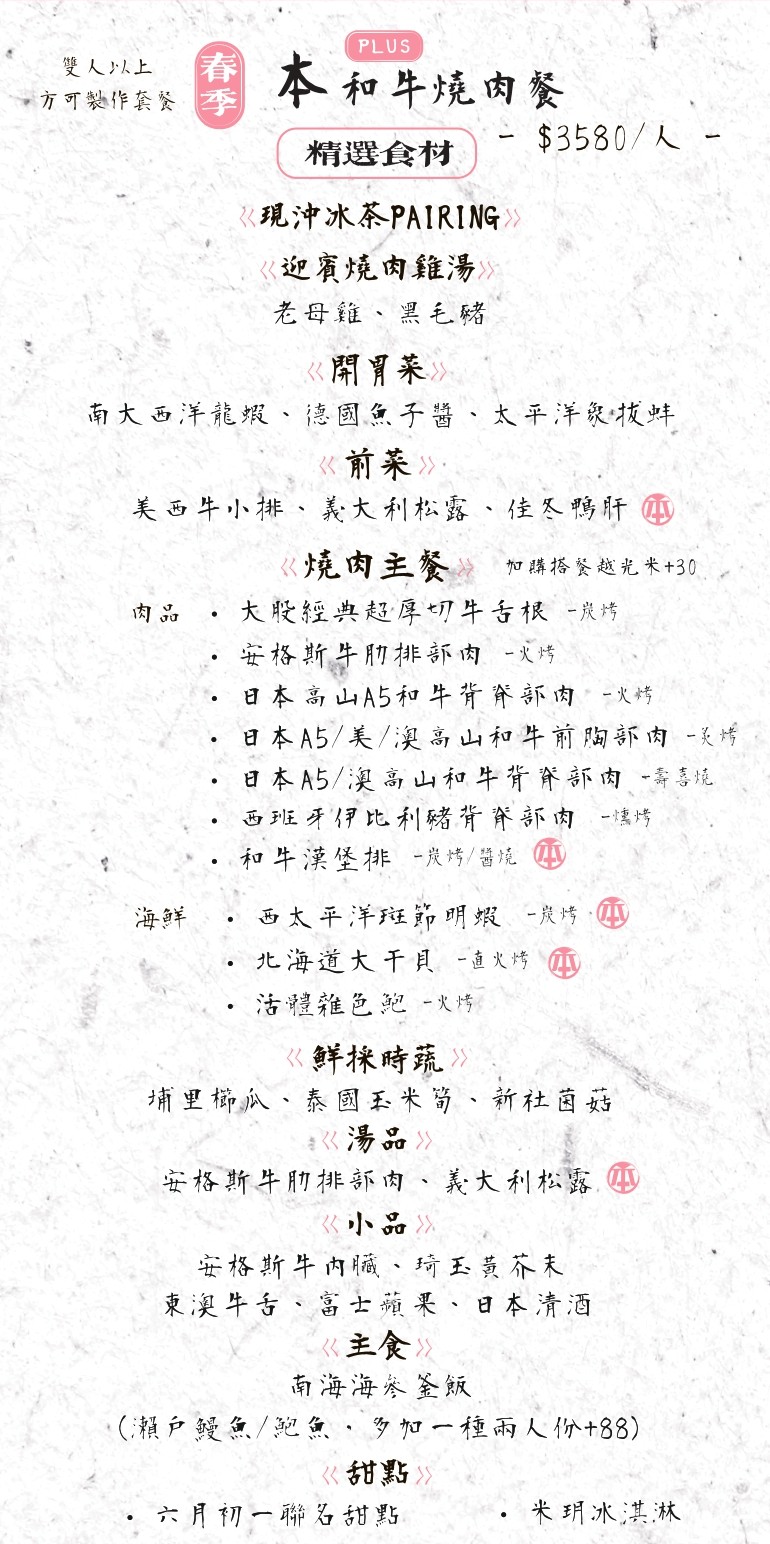 雙人以上
方可製作套餐
春季
PLUS
本和牛燒肉餐
- $3580/人 -
精選食材
《現沖冰茶PAIRING》
《迎賓燒肉雞湯》
老母雞、黑毛豬
《開胃菜》
南大西洋龍蝦、德國魚子醬、太平洋象拔蚌
《前菜》
美西牛小排、義大利松露、佳冬鴨肝 本
《燒肉主餐》 加購搭餐越光米+30
肉品 • 大股經典超厚切牛舌根 -炭烤
• 安格斯牛肋排部肉 -火烤
• 日本高山A5和牛背脊部肉 -火烤
• 日本A5/美/澳高山和牛前胸部肉 -炙烤
• 日本A5/澳高山和牛背脊部肉 -壽喜燒
• 西班牙伊比利豬背脊部肉 -燻烤
• 和牛漢堡排 -炭烤/醬燒 本
海鮮 • 西太平洋斑節明蝦 -炭烤 本
• 北海道大干貝 -直火烤 本
• 活體雜色鮑 -火烤
《鮮採時蔬》
埔里櫛瓜、泰國玉米筍、新社菌菇
《湯品》
安格斯牛肋排部肉、義大利松露 本
《小品》
安格斯牛內臟、琦玉黃芥末
東澳牛舌、富士蘋果、日本清酒
《主食》
南海海參釜飯
(瀨戶鰻魚/鮑魚，多加一種兩人份+88)
《甜點》
• 六月初一聯名甜點 • 米玥冰淇淋